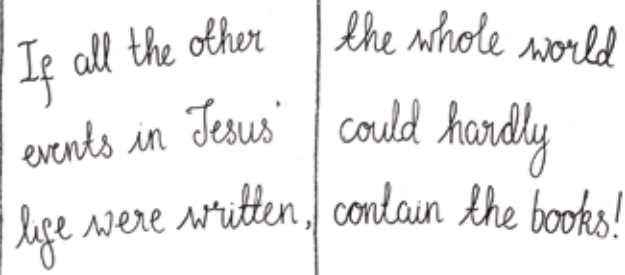 If all the other
events in Jesus'
life were written,
the whole world
could hardly
contain the books!